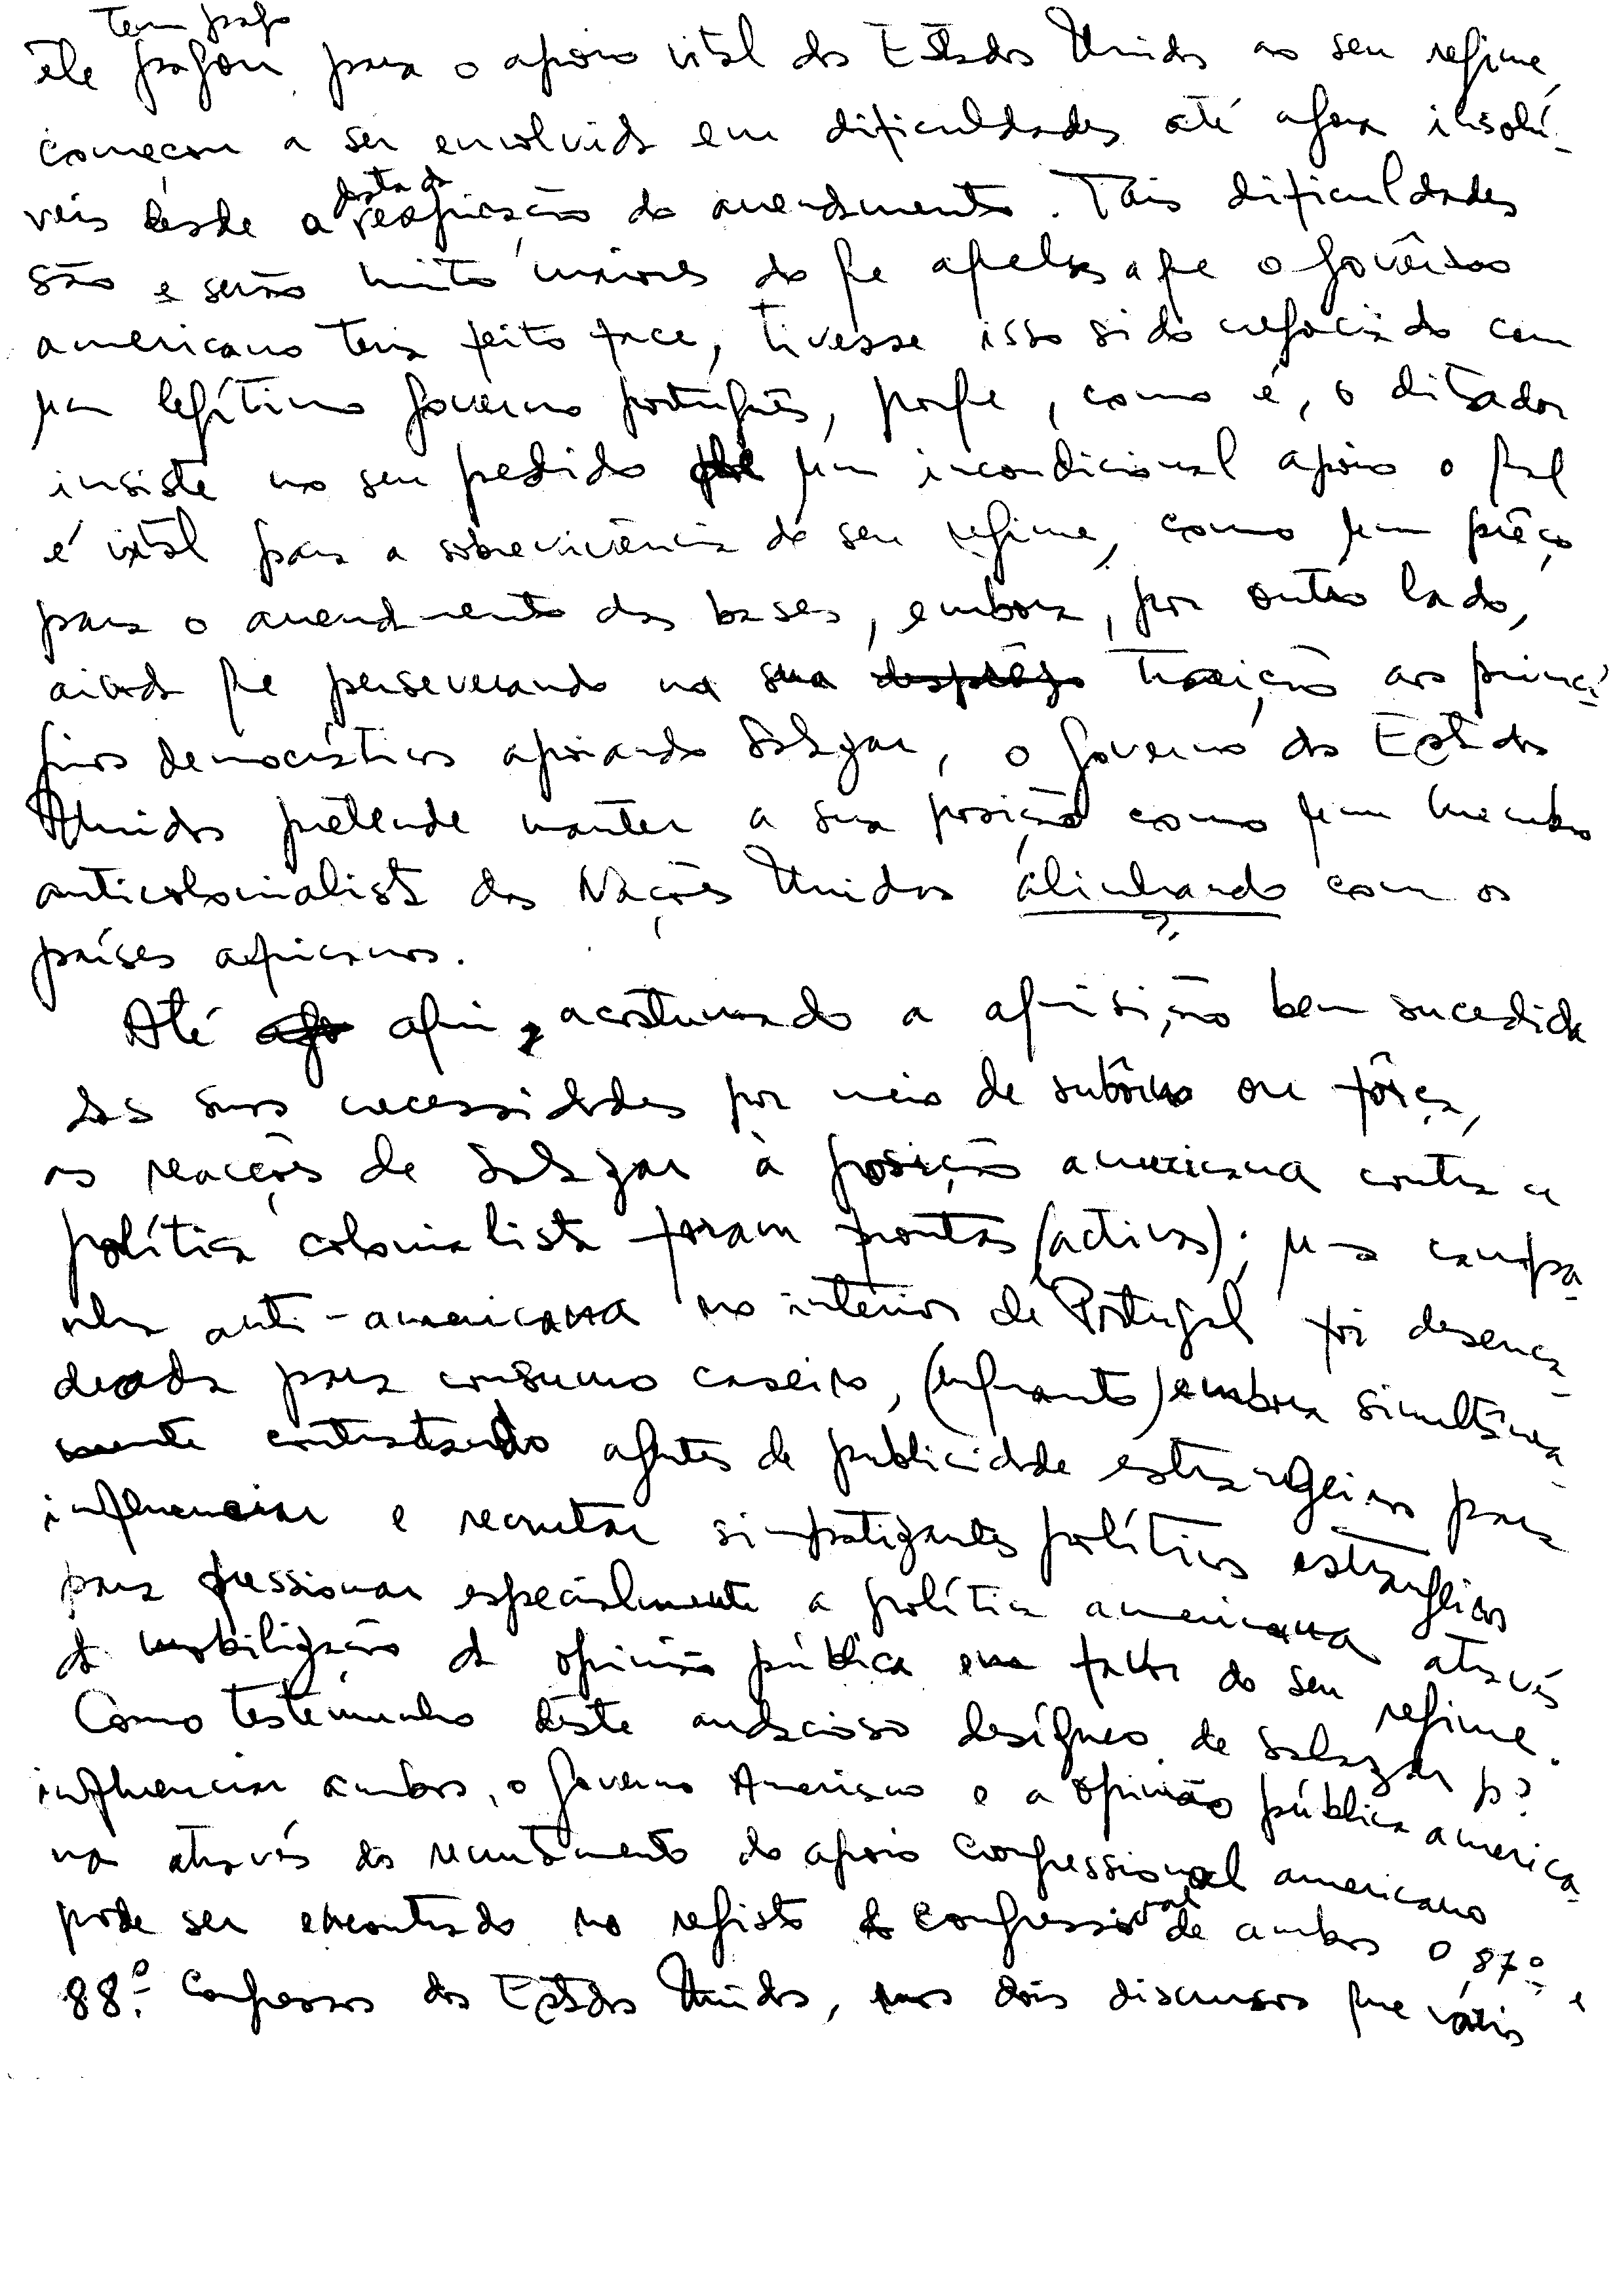 tem pago
êle pagou para o apoio vital dos Estados Unidos ao seu regime,
começou a ser envolvido em dificuldades até agora insolú-
data da
veis desde a reaquisição do arrendamento. Tais dificuldades
são e serão muito maiores do que aquelas a que o govêrno
americano teria feito face, tivesse isso sido negociado com
um legítimo governo português, porque, como é, o ditador
insiste no seu pedido um incondicional apoio o qual
é vital para a sobrevivência do seu regime, como um prêço
para o arrendamento das bases, embora, por outro lado,
ainda que perseverando na sua desprêzo traição aos princí-
pios democráticos apoiando Salazar, o governo dos Estados
Unidos pretende manter a sua posição como um membro
anticolonialista das Nações Unidas alinhando com os
?
países africanos.
Até aqui, acostumado a aquisição bem sucedida
das suas necessidades por meio de subôrno ou fôrça,
as reacções de Salazar à posição americana contra a
política colonialista foram prontas (activas); uma campa-
nha anti-americana no interior de Portugal foi desenca-
deada para consumo caseiro, (enquanto) embora simultânea-
mente contratando agentes de publicidade estrangeiros para
influenciar e recrutar simpatizantes políticos estrangeiros
para pressionar especialmente a política americana através
da mobilização da opinião pública em favor do seu regime.
Como testemunho dêste audacioso desígneo de Salazar p?
influenciar ambos, o governo Americano e a opinião pública america-
na através do recrutamento do apoio congressional americano
pode ser encontrado no registo do congressional de ambos o 87º e
88º Congressos dos Estados Unidos, nos dois discursos que vários